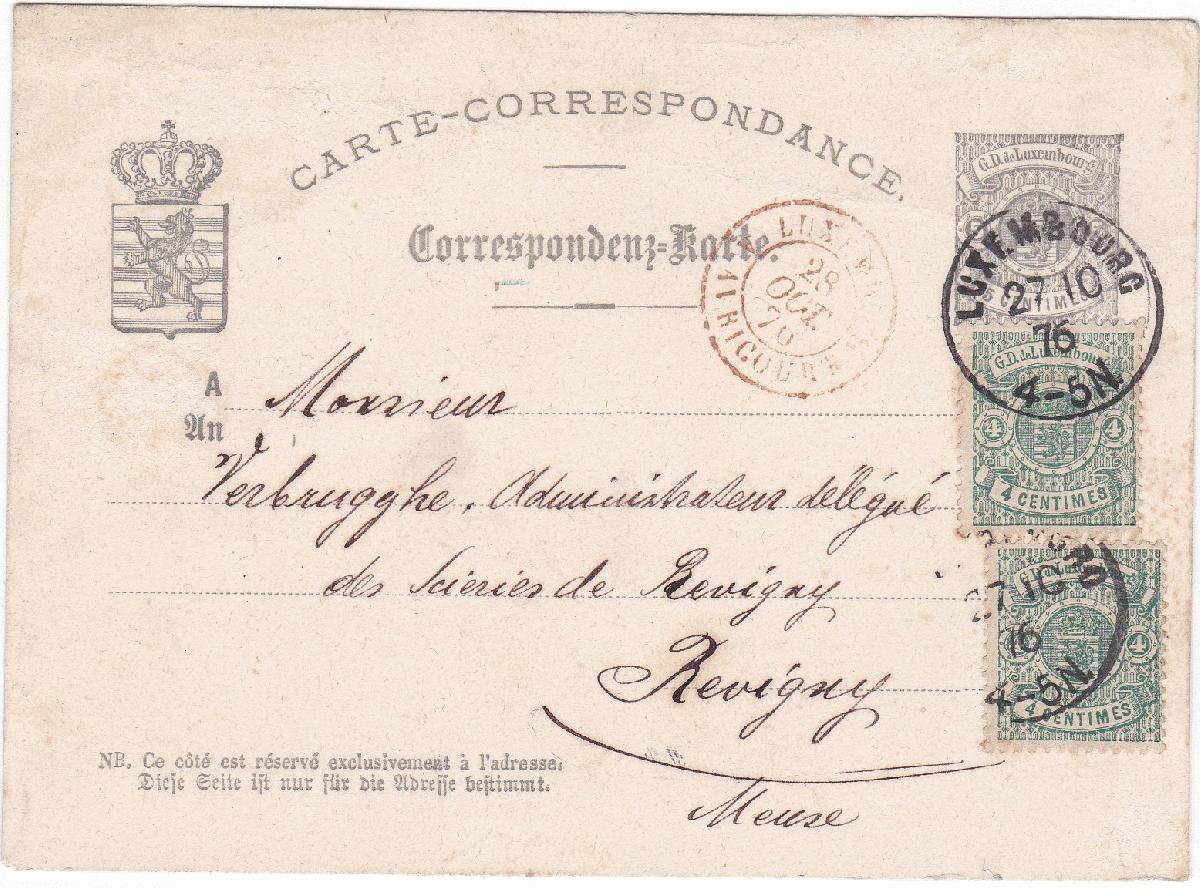 CARTE-CORRESPONDANCE.
Correspondenz-Karte.
G.D. de Luxembourg
5 CENTIMES
LUXEMBOURG
27 10
76
4-5N
LUXEMB
28
OCT.
76
AVRICOURT
A
An
Monsieur
Verbrugghe, Administrateur délégué
des Scieries de Revigny
Revigny
Meuse
G.D. de Luxembourg
4 4
4 CENTIMES
27 10
76
4-5N
4
4 CENTIMES
NB. Ce côté est réservé exclusivement à l'adresse.
Diese Seite ist nur für die Adresse bestimmt.